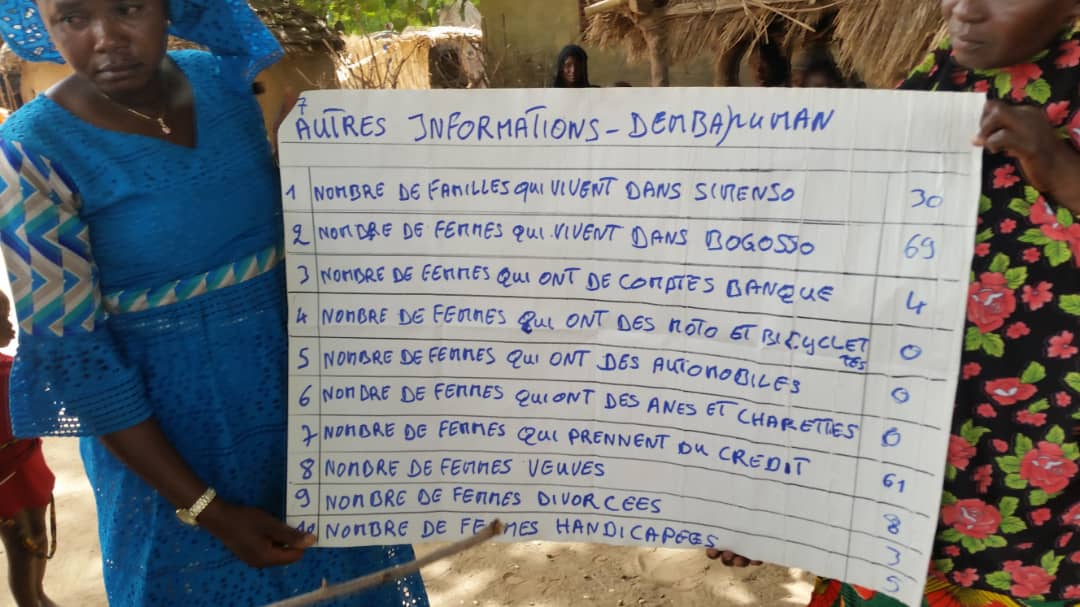 7
AUTRES INFORMATIONS - DEMBAYUMAN
1 NOMBRE DE FAMILLES QUI VIVENT DANS SIMENSO 30
2 NOMBRE DE FEMMES QUI VIVENT DANS BOGOSSO 69
3 NOMBRE DE FEMMES QUI ONT DE COMPTES BANQUE 4
4 NOMBRE DE FEMMES QUI ONT DES MOTO ET BICYCLET
TES 0
5 NOMBRE DE FEMMES QUI ONT DES AUTOMOBILES 0
6 NOMBRE DE FEMMES QUI ONT DES ANES ET CHARETTES 0
7 NOMBRE DE FEMMES QUI PRENNENT DU CREDIT 61
8 NOMBRE DE FEMMES VEUVES 8
9 NOMBRE DE FEMMES DIVORCEES 3
10 NOMBRE DE FEMMES HANDICAPEES 5